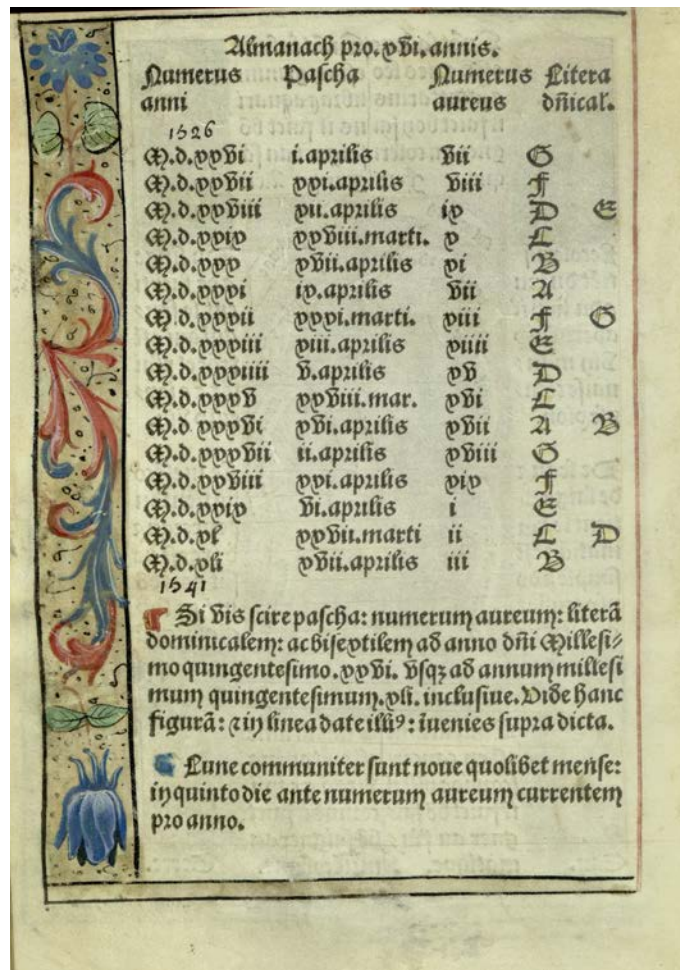 Almanach pro.xvi.annis.
Numerus Pascha Numerus Litera
anni aureus dñical.
1526
M.d.xxvi i.aprilis vii G
M.d.xxvii xxi.aprilis viii F
M.d.xxviii xii.aprilis ix D E
M.d.xxix xxviii.marti. x C
M.d.xxx xvii.aprilis xi B
M.d.xxxi ix.aprilis vii A
M.d.xxxii xxxi.marti. xiii F G
M.d.xxxiii xiii.aprilis xiiii E
M.d.xxxiiii v.aprilis xv D
M.d.xxxv xxviii.mar. xvi C
M.d xxxvi xvi.aprilis xvii A B
M.d.xxxvii ii.aprilis xviii G
M.d.xxviii xxi.aprilis xix F
M.d.xxix vi.aprilis i E
M.d.xl xxvii.marti ii C D
M.d.xli xvii.aprilis iii B
1541
¶ Si vis scire pascha: numerum aureum: literã
dominicalem: ac bisextilem ad anno dñi Millesi⸗
mo quingentesimo.xxvi. vsqꝫ ad annum millesi
mum quingentesimum.xli. inclusiue. Vide hanc
figurã: ⁊ in linea date illiꝰ: iuenies supra dicta.
¶ Lune communiter sunt noue quolibet mense:
in quinto die ante numerum aureum currentem
pro anno.